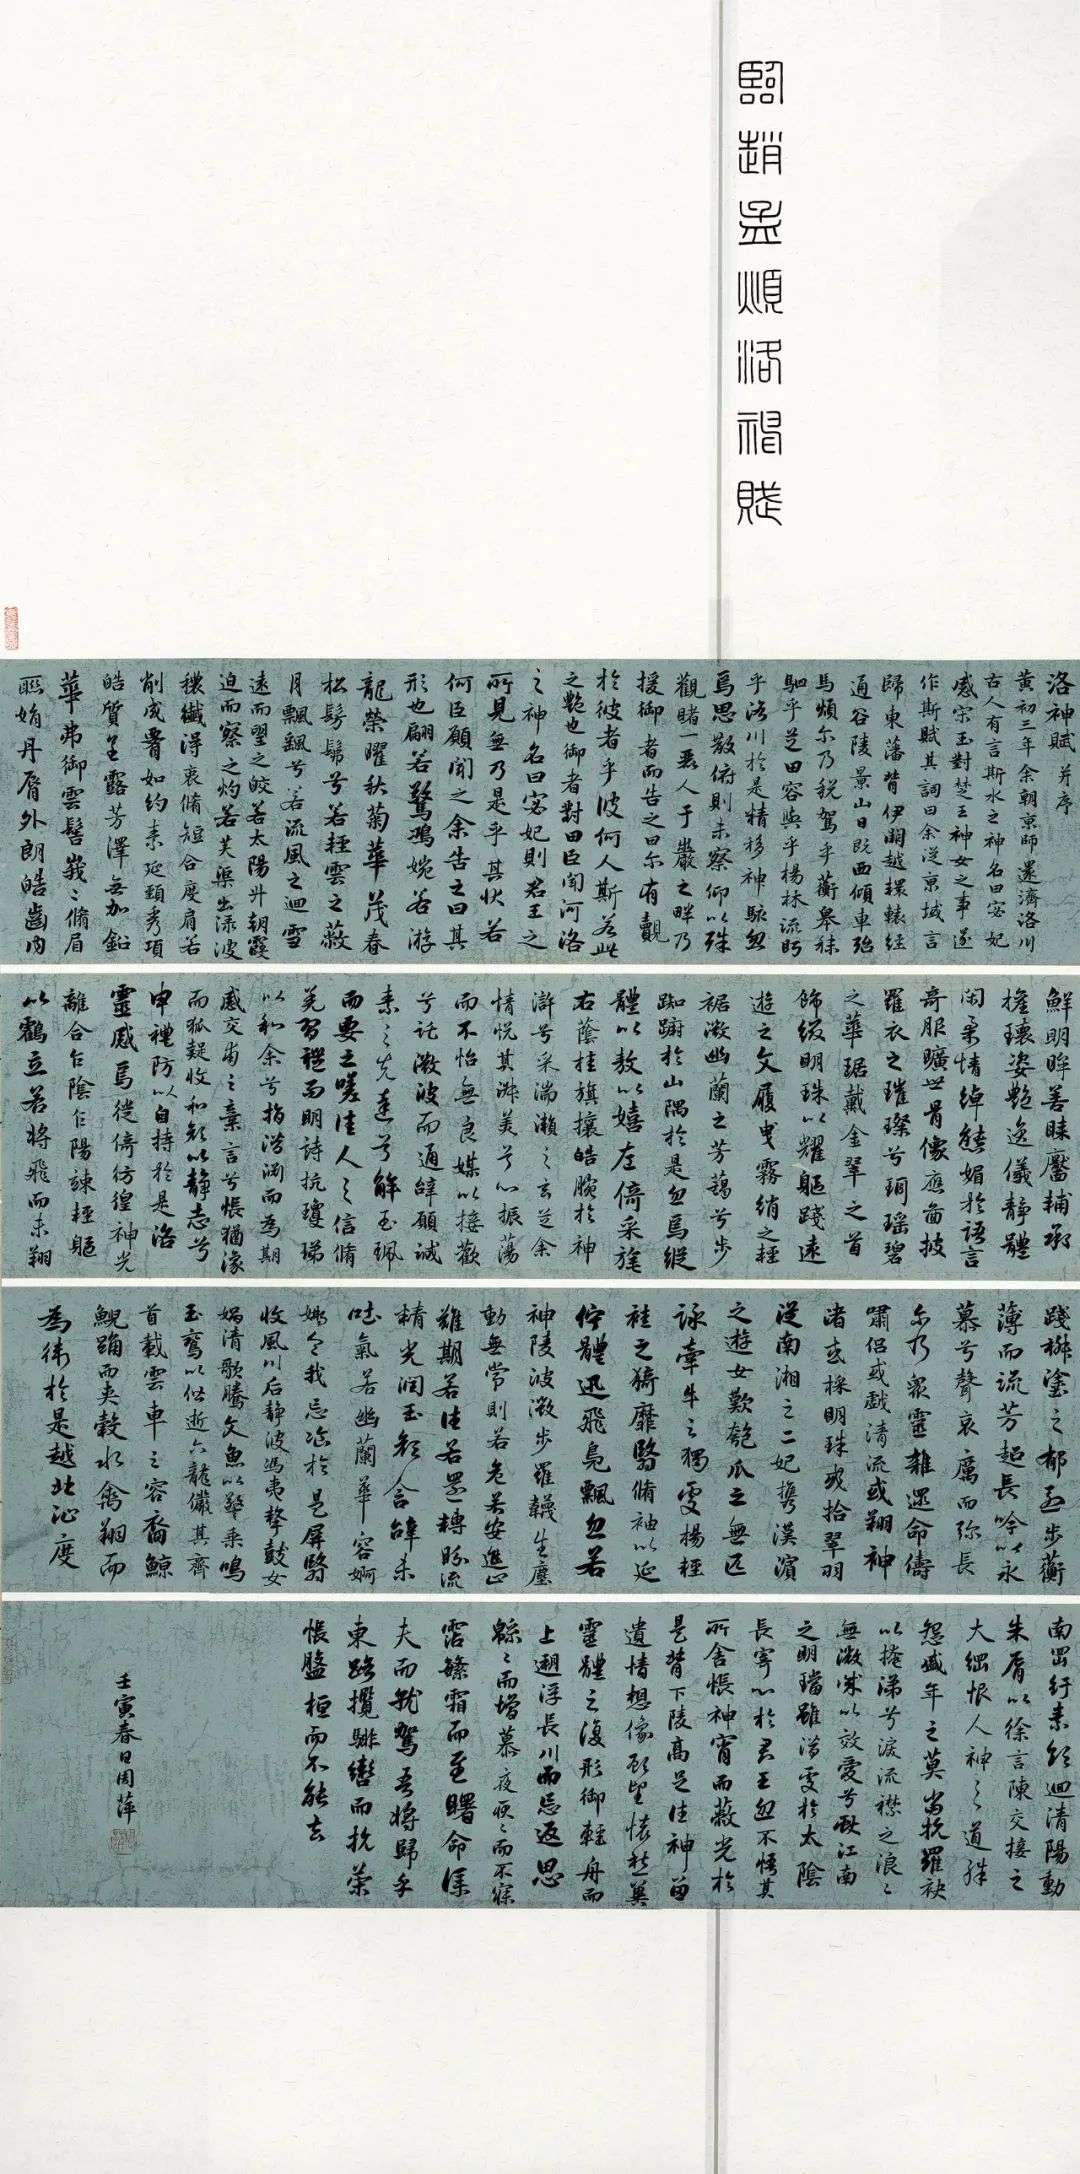 臨趙孟頫洛神賦
洛神賦 并序
黃初三年余朝京師還濟洛川
古人有言斯水之神名曰宓妃
感宋玉對楚王神女之事遂
作斯賦其詞曰余從京域言
歸東藩背伊闕越轘轅經
通谷陵景山日既西傾車殆
馬煩尔乃稅駕乎蘅皋秣
駟乎芝田容與乎楊林流眄
乎洛川於是精移神駭忽
焉思散俯則未察仰以殊
觀睹一麗人于巖之畔乃
援御者而告之曰尔有覿
於彼者乎彼何人斯若此
之艷也御者對曰臣聞河洛
之神名曰宓妃則君王之
所見無乃是乎其狀若
何臣願聞之余告之曰其
形也翩若驚鴻婉若游
龍榮曜秋菊華茂春
松髣髴兮若輕雲之蔽
月飄飖兮若流風之迴雪
遠而望之皎若太陽升朝霞
迫而察之灼若芙蕖出淥波
穠纖得衷脩短合度肩若
削成署如約素延頸秀項
皓質呈露芳澤無加鉛
華弗御雲髻峩〻脩眉
聯娟丹脣外朗皓齒內
鮮明眸善睞靨輔承
權瓌姿艷逸儀靜體
閑柔情綽態媚於語言
奇服曠世骨像應圖披
羅衣之璀璨兮珥瑤碧
之華琚戴金翠之首
飾綴明珠以耀軀踐遠
遊之文履曳霧綃之輕
裾微幽蘭之芳藹兮步
踟躕於山隅於是忽焉縱
體以敖以嬉左倚采旄
右蔭桂旗攘皓腕於神
滸兮采湍瀨之玄芝余
情悅其淑美兮心振蕩
而不怡無良媒以接歡
兮託微波而通辭願誠
素之先達兮解玉珮
而要之嗟佳人之信脩
羌習禮而明詩抗瓊珶
以和余兮指潛淵而為期
感交甫之棄言兮悵猶豫
而狐疑收和顏以靜志兮
申禮防以自持於是洛
靈感焉徙倚彷徨神光
離合乍陰乍陽竦輕軀
以鶴立若將飛而未翔
踐椒塗之郁烈步蘅
薄而流芳超長吟以永
慕兮聲哀厲而弥長
尔乃眾靈雜遝命儔
嘯侶或戲清流或翔神
渚或採明珠或拾翠羽
從南湘之二妃攜漢濱
之遊女歎匏瓜之無匹
詠牽牛之獨處揚輕
袿之猗靡翳脩袖以延
佇體迅飛鳧飄忽若
神陵波微步羅韈生塵
動無常則若危若安進止
難期若往若還轉眄流
精光潤玉顏含辭未
吐氣若幽蘭華容婀
娜令我忘飡於是屏翳
收風川后靜波馮夷擊鼓女
媧清歌騰文魚以警乘鳴
玉鸞以偕逝六龍儼其齊
首載雲車之容裔鯨
鯢踴而夾轂水禽翔而
為衛於是越北沚度
南岡紆素領迴清陽動
朱脣以徐言陳交接之
大綱恨人神之道殊
怨盛年之莫當抗羅袂
以掩涕兮淚流襟之浪〻
無微情以效愛兮獻江南
之明璫雖潛處於太陰
長寄心於君王忽不悟其
所舍悵神宵而蔽光於
是背下陵高足往神留
遺情想像顧望懷愁冀
靈體之復形御輕舟而
上遡浮長川而忘返思
緜〻而增慕夜耿〻而不寐
霑繁霜而至曙命僕
夫而就駕吾將歸乎
東路攬騑轡而抗策
悵盤桓而不能去
壬寅春日周萍